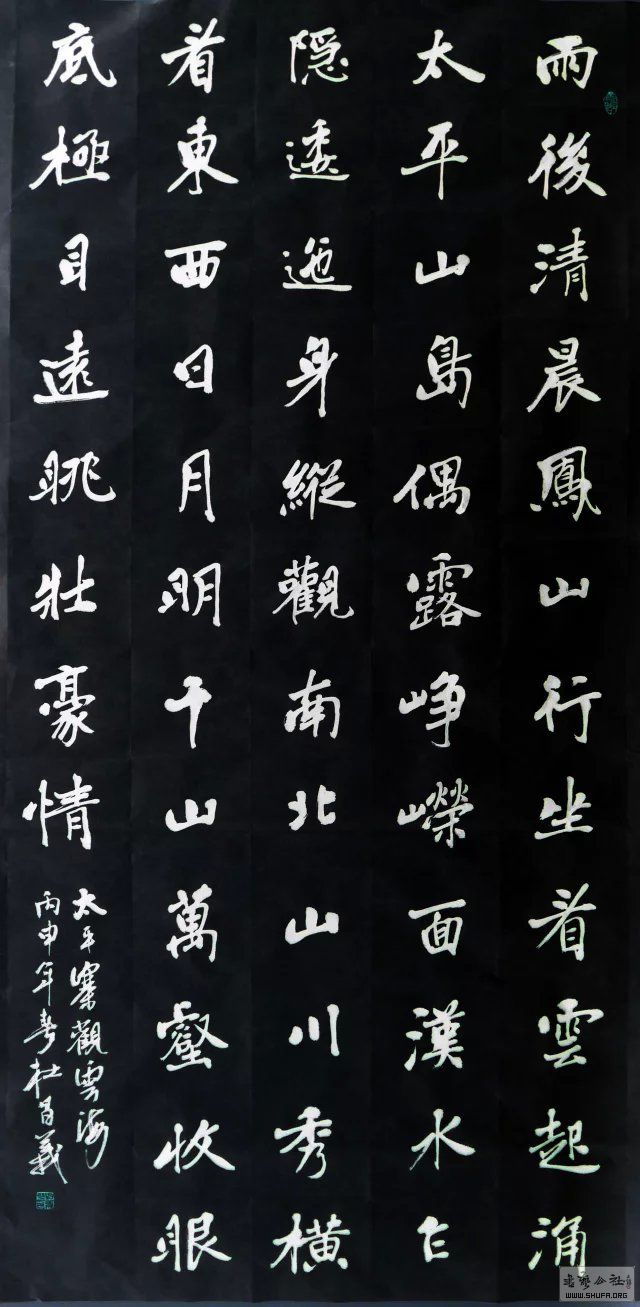 雨後清晨鳳山行坐看雲起涌
太平山島偶露峥嶸面漢水乍
隐逶迤身縱觀南北山川秀横
看東西日月明千山萬壑收眼
底極目遠眺壯豪情
太平寨觀雲海
丙申年春杜昌義
書法公社
WWW.SHUFA.ORG